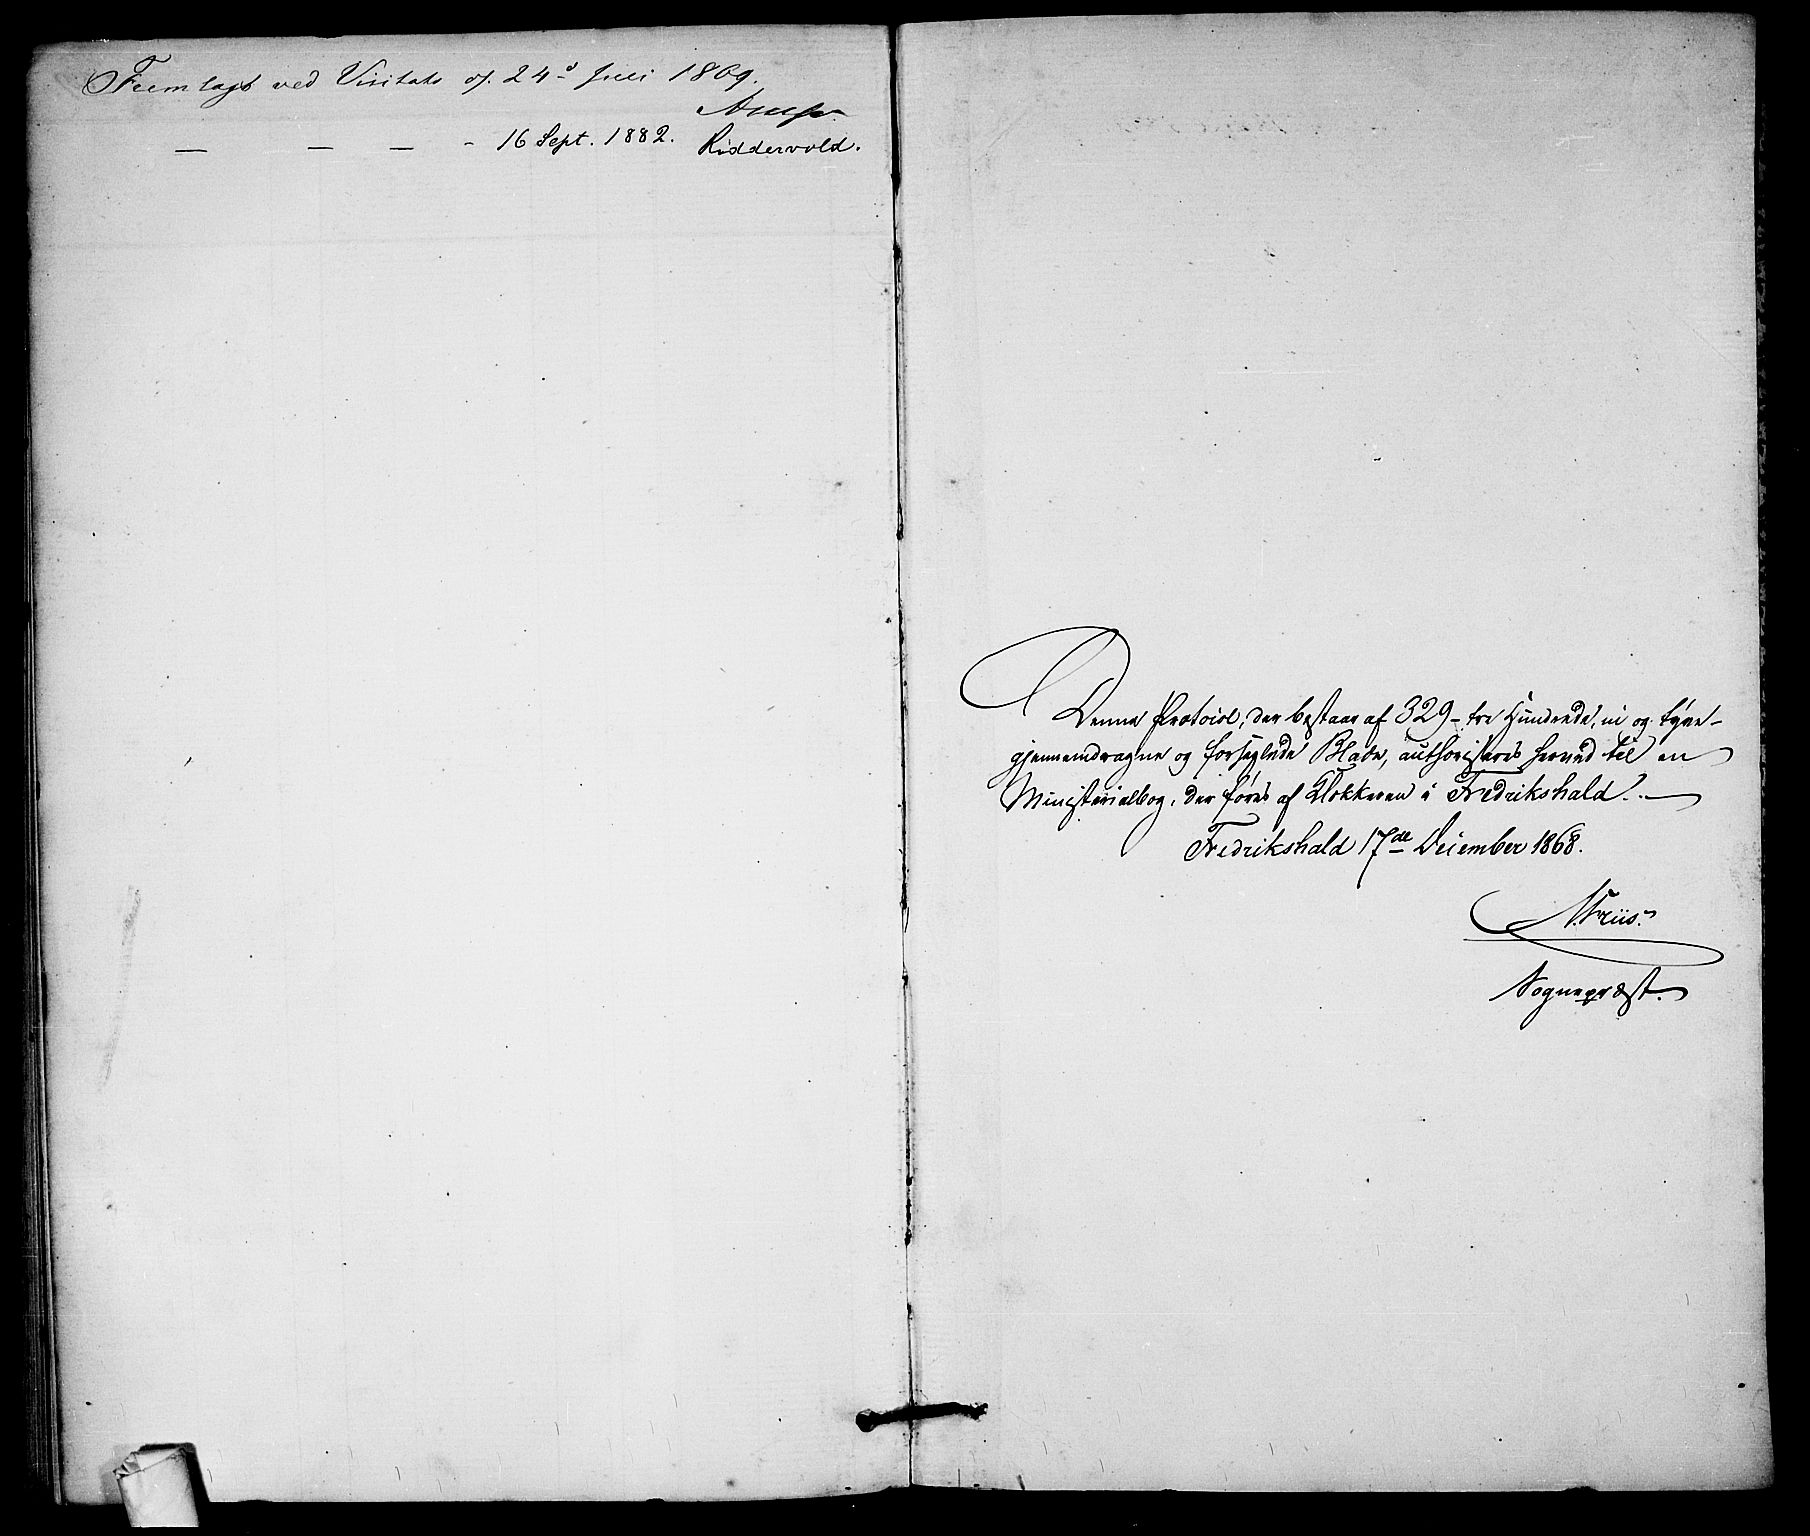 Fremlagt ved Visitats d. 24de Juli 1869.
Arup
— — — - 16 Sept. 1882. Riddervold.
Denne Protocol, der bestaar af 329 - tre Hundrede, ni og tyve -
gjennemdragne og forseglede Blade, authoriseres herved til en
Ministerialbog, der føres af Klokkeren i Fredrikshald. —
Fredrikshald 17de December 1868.
N. Friis.
Sognepræst.